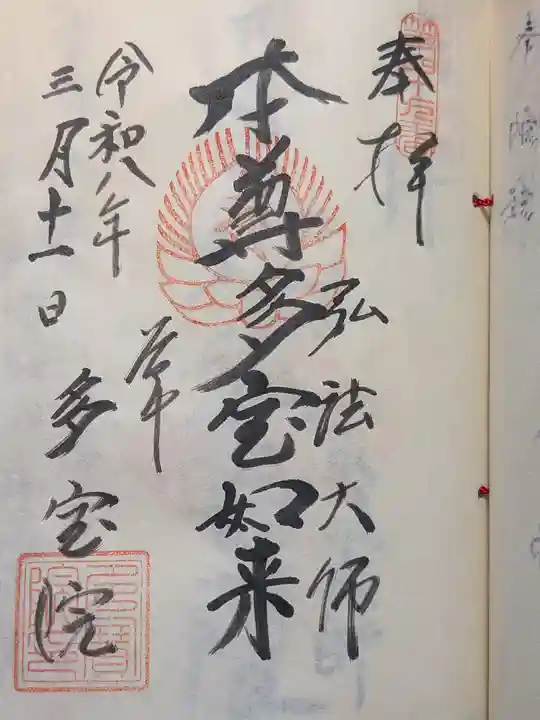 奉拝
弘法大師
本尊多宝如来
令和八年
三月十一日
多宝院